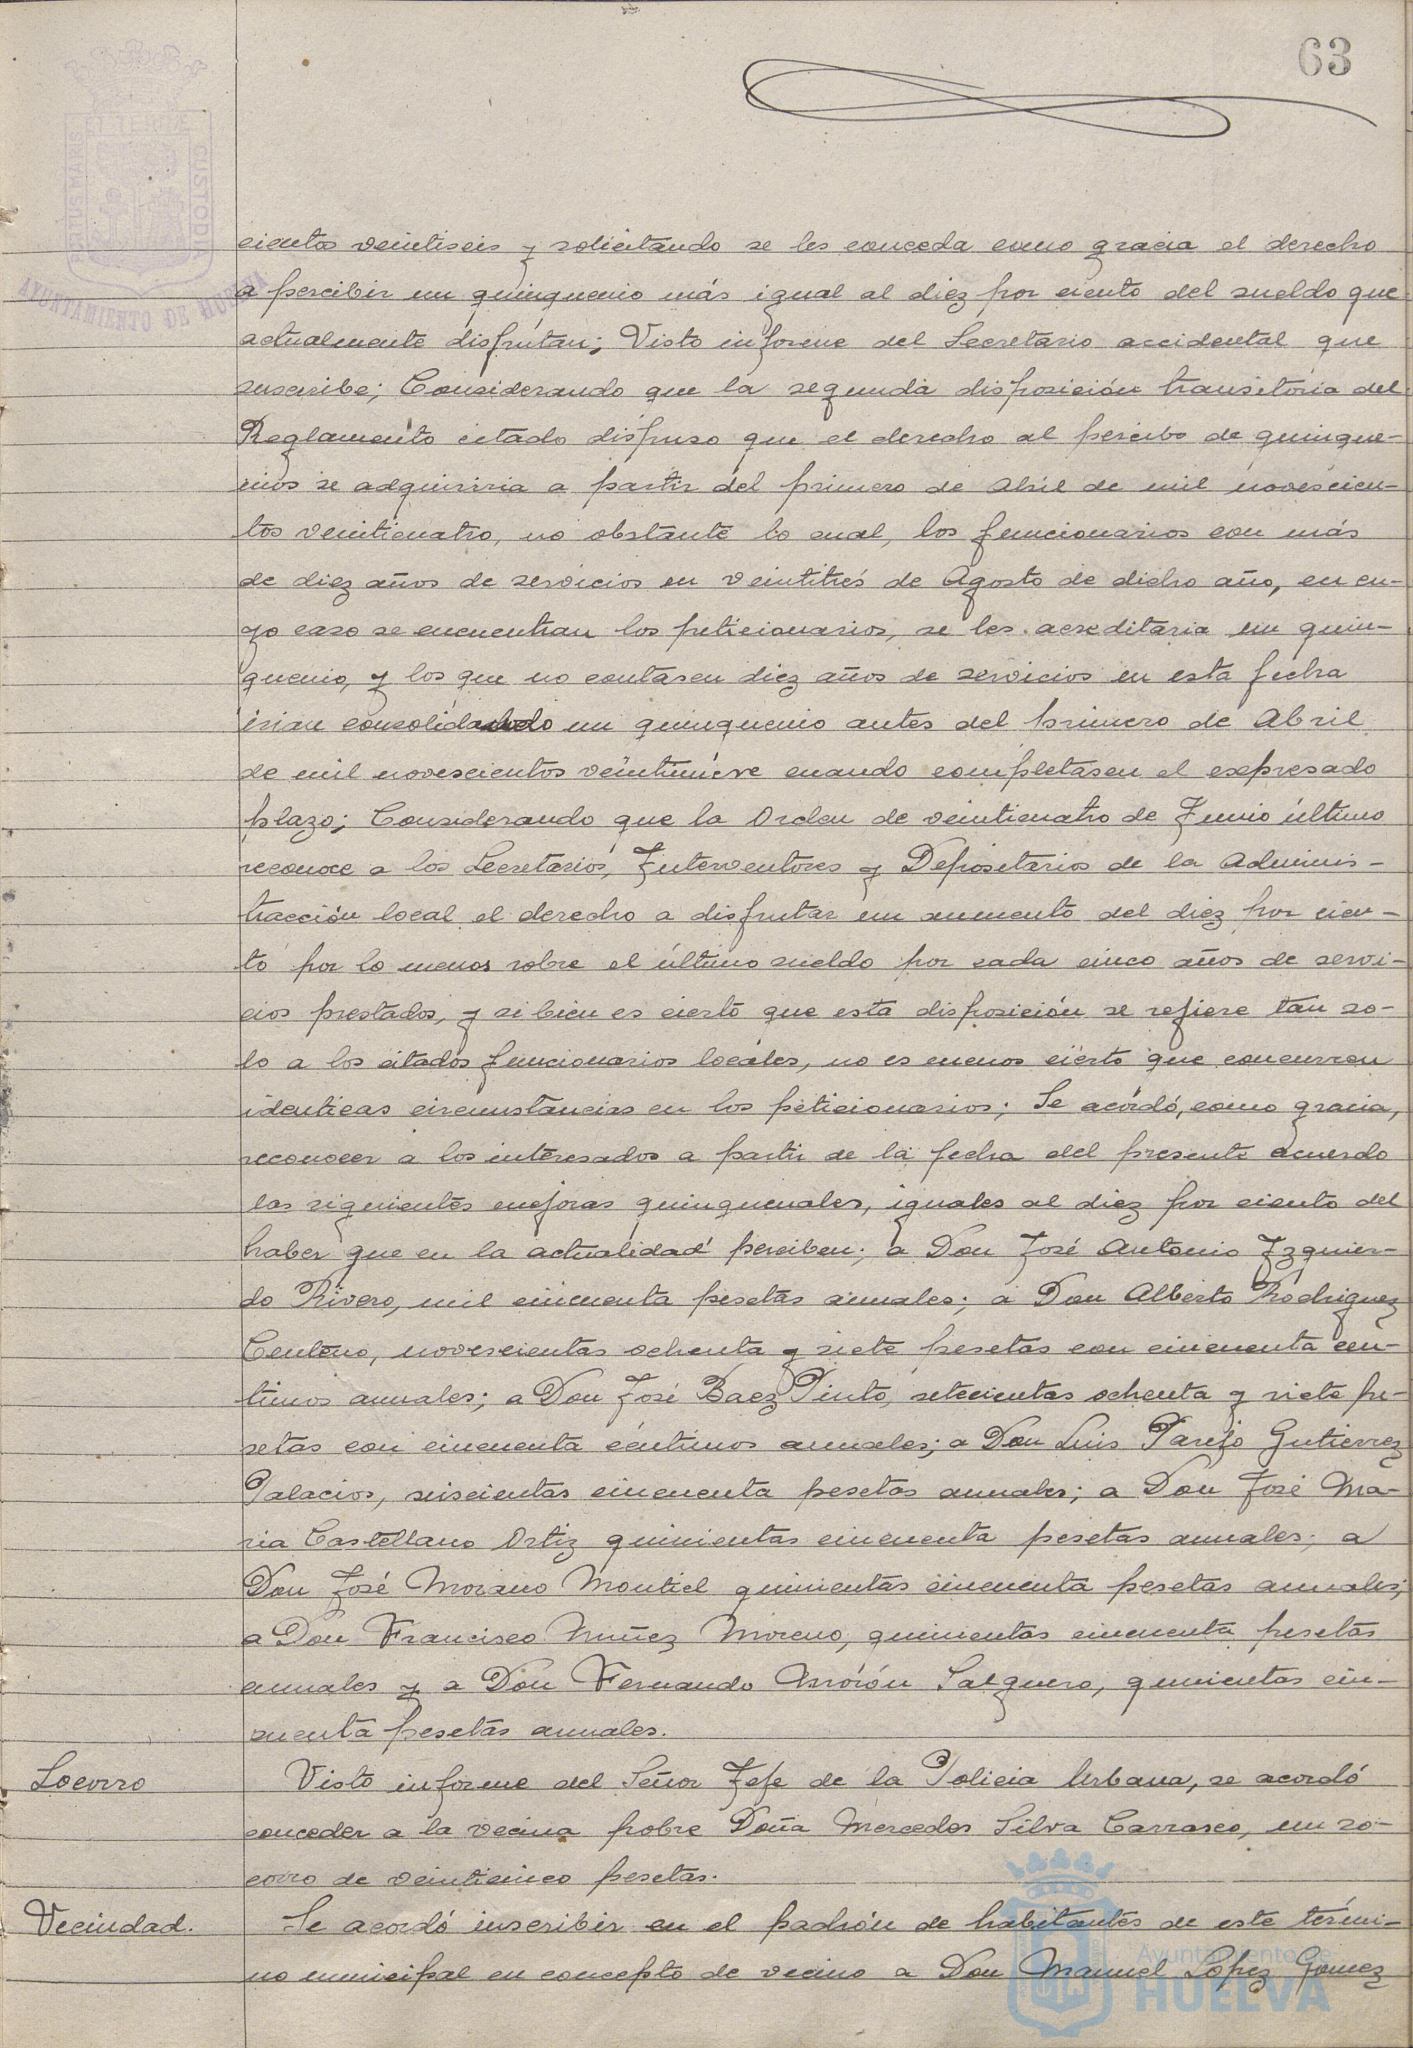 63
PORTUS MARIS ET TERRE CUSTODIA
AYUNTAMIENTO DE HUELVA
cientos veintiseis y solicitando se les conceda como gracia el derecho
a percibir un quinquenio más igual al diez por ciento del sueldo que
actualmente disfrutan; Visto informe del Secretario accidental que
suscribe; Considerando que la segunda disposición transitoria del
Reglamento citado dispuso que el derecho al percibo de quinque-
nios se adquiriria a partir del primero de Abril de mil novescien-
tos veinticuatro, no obstante lo cual, los funcionarios con más
de diez años de servicios en veintitrés de Agosto de dicho año, en cu-
yo caso se encuentran los peticionarios, se les acreditaria un quin-
quenio, y los que no contasen diez años de servicios en esta fecha
irian consolidando un quinquenio antes del primero de Abril
de mil novescientos veintinueve cuando completasen el expresado
plazo; Considerando que la Orden de veinticuatro de Junio último
reconoce a los Secretarios, Interventores y Depositarios de la Adminis-
tracción local el derecho a disfrutar un aumento del diez por cien-
to por lo menos sobre el último sueldo por cada cinco años de servi-
cios prestados, y si bien es cierto que esta disposición se refiere tan so-
lo a los citados funcionarios locales, no es menos cierto que concurren
identicas circunstancias en los peticionarios; Se acordó, como gracia,
reconocer a los interesados a partir de la fecha del presente acuerdo
las siguientes mejoras quinquenales, iguales al diez por ciento del
haber que en la actualidad perciben; a Don José Antonio Izquier-
do Rivero, mil cincuenta pesetas anuales; a Don Alberto Rodriguez
Centeno, novescientas ochenta y siete pesetas con cincuenta cen-
timos anuales; a Don José Baez Pinto, setecientas ochenta y siete pe-
setas con cincuenta céntimos anuales; a Don Luis Parejo Gutierrez
Palacios, seiscientas cincuenta pesetas anuales; a Don José Ma-
ria Castellano Ortiz quinientas cincuenta pesetas anuales; a
Don José Morano Montiel quinientas cincuenta pesetas anuales;
a Don Francisco Nuñez Moreno, quinientas cincuenta pesetas
anuales y a Don Fernando Morón Salguero, quinientas cin-
cuenta pesetas anuales.
Socorro
Visto informe del Señor Jefe de la Policia Urbana, se acordó
conceder a la vecina pobre Doña Mercedes Silva Carrasco, un so-
corro de veinticinco pesetas.
Vecindad.
Se acordó inscribir en el padrón de habitantes de este térmi-
no municipal en concepto de vecino a Don Manuel López Gomez
Ayuntamiento de
HUELVA